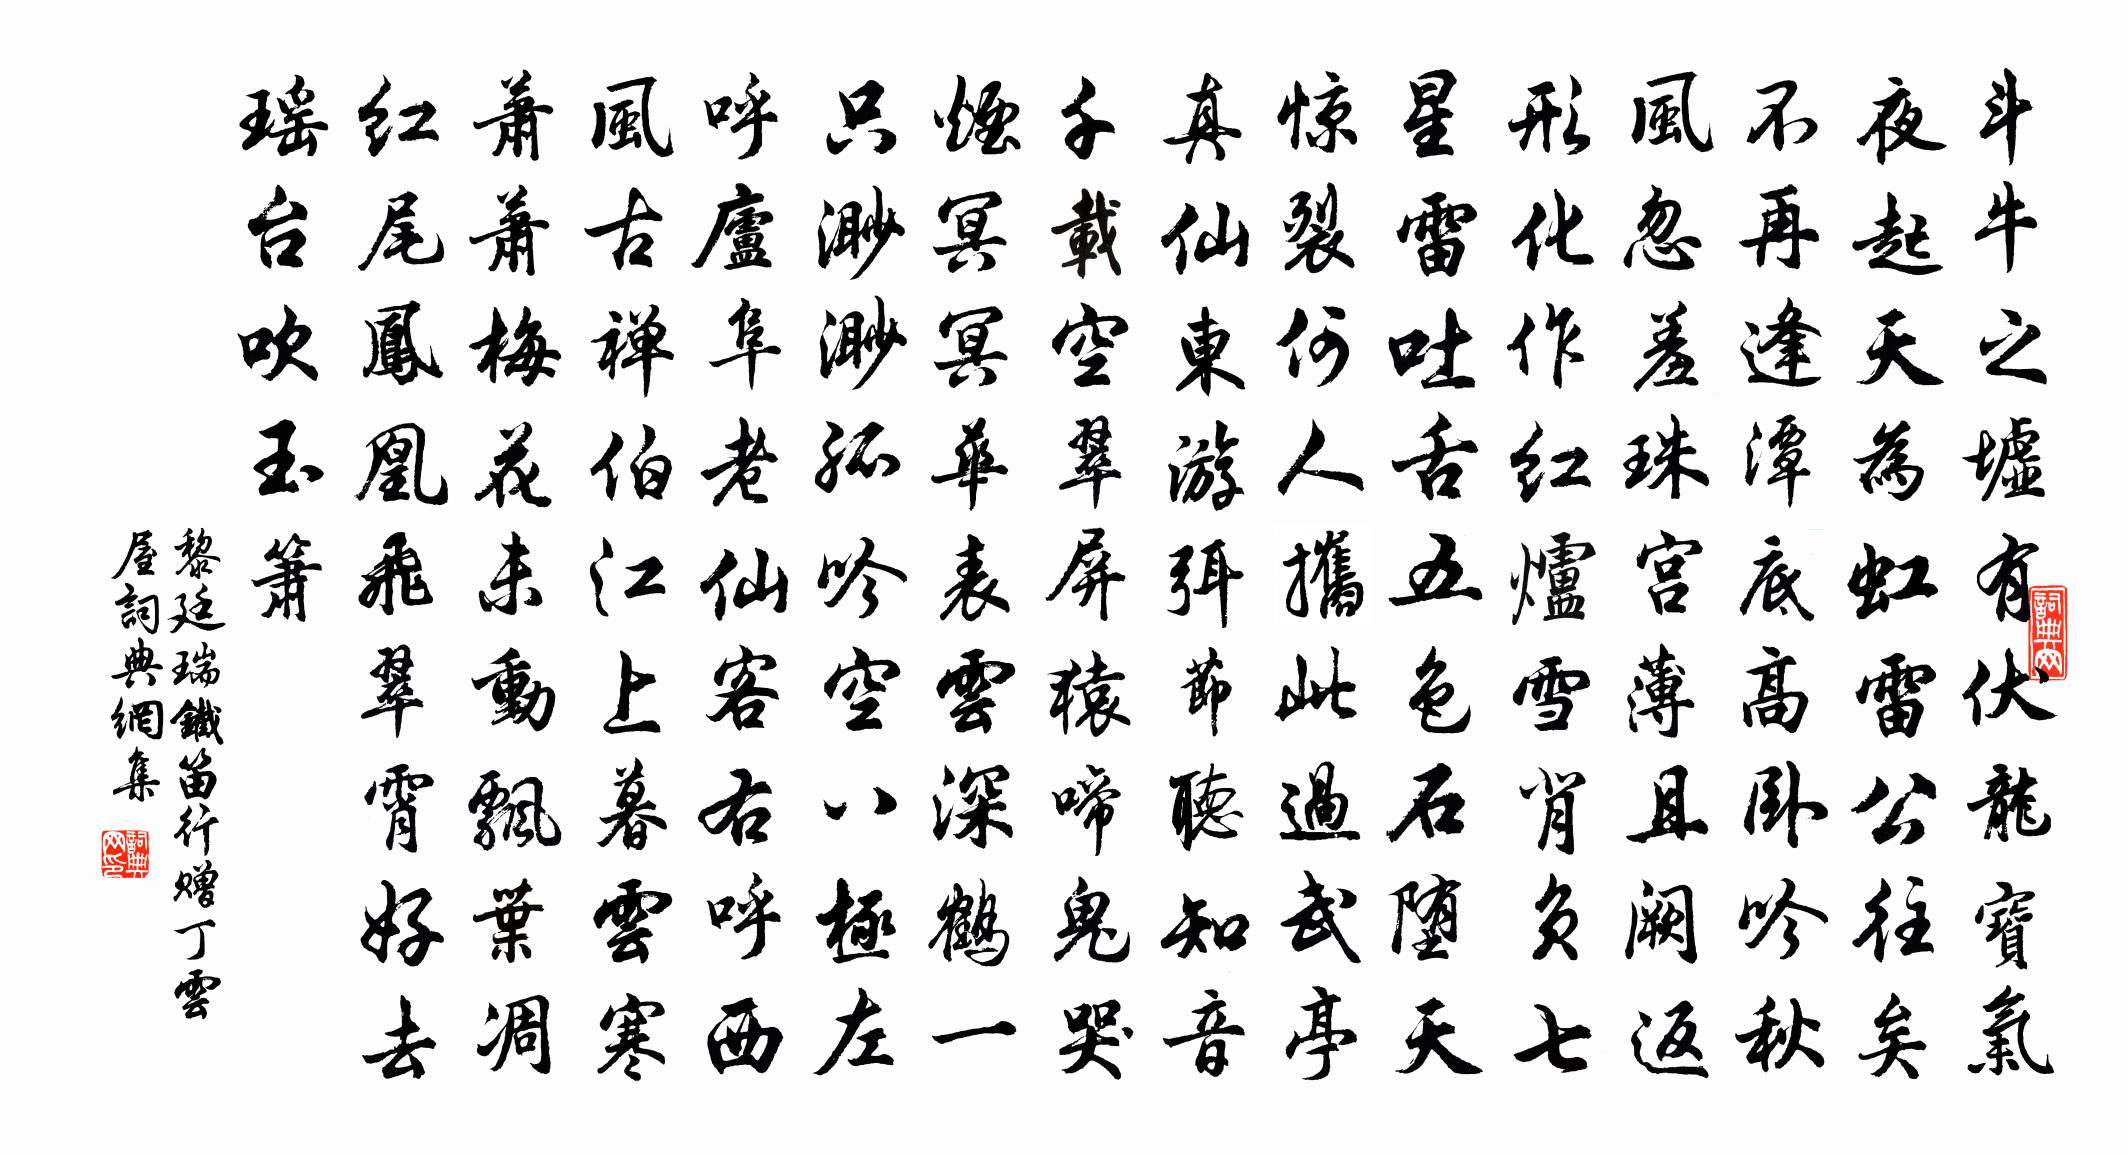 斗牛之墟有伏龍寶氣
夜起天為虹雷公往矣
不再逢潭底高卧吟秋
風忽羞珠宫薄且阙返
形化作红爐雪背負七
星雷吐舌五色石堕天
惊裂何人攜此過武亭
真仙東游弭節聽知音
千載空翠屏猿啼鬼哭
煙冥冥華表雲深鶴一
只渺渺孤吟空八極左
呼廬阜老仙客右呼西
風古禅伯江上暮雲寒
蕭蕭梅花未動飄葉凋
红尾鳳凰飛翠霄好去
瑶台吹玉簫
黎廷瑞鐵笛行赠丁雲
屋詞典網集
詞典网
詞典网印